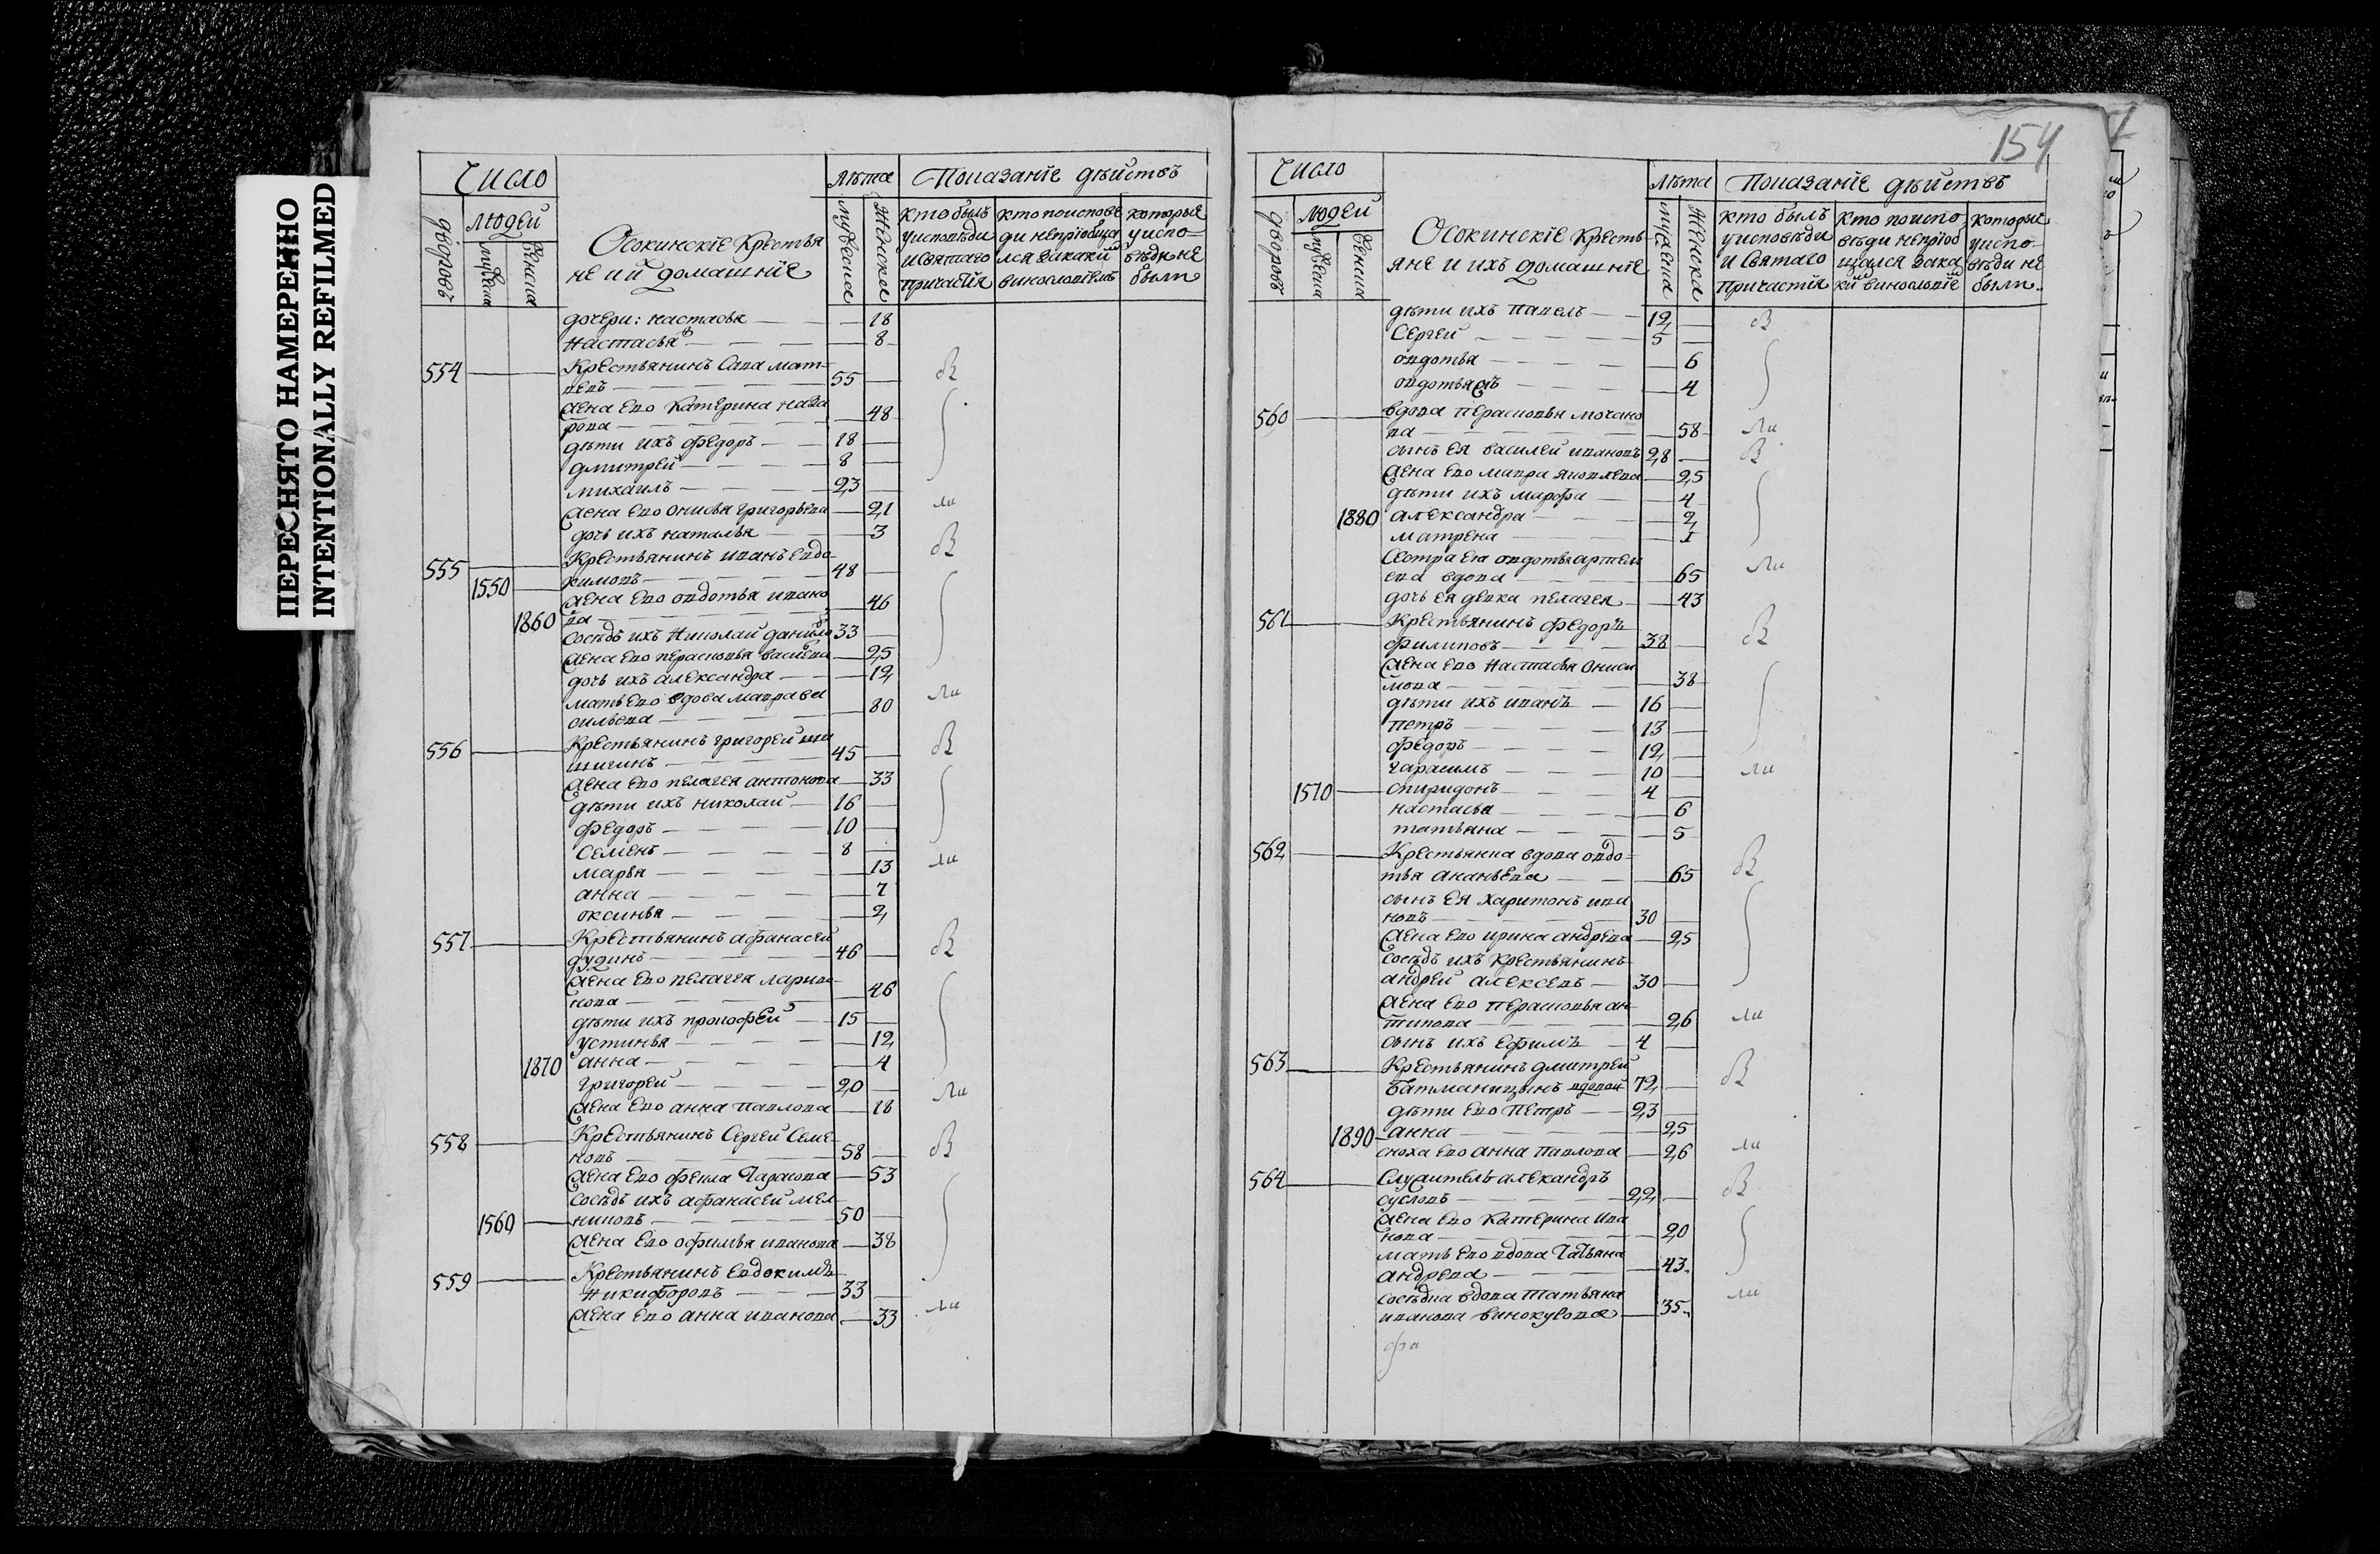 ПЕРЕСНЯТО НАМЕРЕННО
INTENTIONALLY REFILMED
Число
Лѣта
Показанїе дѣйствъ
дворовъ
людей
мужеска
женска
Осокинскїе Крестья
не и их домашнїе
мужеска
Женска
кто былъ
у исповѣди
и святаго
причастїя
кто поиспове
ди непрїобща
лся за каки
винословїемъ
которые
у испо-
вѣди не
были
дочери: настасья 18
Настасья 8
554 Крестьянинъ Сава мат-
вевъ 55
жена ево Катерина наза
рова 48
дѣти ихъ федоръ 18
дмитрей 8
михаилъ 23
жена ево онисья григорьева 21
дочь ихъ наталья 3
555 Крестьянинъ иванъ евдо
кимовъ 48
1550
жена ево овдотья ивано
ва 46
1860
Сосѣдъ ихъ Николай данило 33
жена ево перасковья васиева 25
дочь ихъ александра 12
мать ево вдова мавра ва
сильева 80
556 Крестьянинъ григорей ши
шигинъ 45
жена ево пелагея антонова 33
дѣти ихъ николай 16
федоръ 10
Семенъ 8
марья 13
анна 7
оксинья 2
557 Крестьянинъ афанасей
дудинъ 46
жена ево пелагея ларио
нова 46
дѣти ихъ прокофей 15
устинья 12
1870 анна 4
григорей 20
жена ево анна павлова 18
558 Крестьянинъ Сергей Семе
новъ 58
жена ево фекла Тарасова 53
Сосѣдъ ихъ афанасей мел
никовъ 50
1560
жена ево офимья иванова 38
559 Крестьянинъ Евдокимъ
Никифоровъ 33
жена ево анна иванова 33
154
Число
Лѣта
Показанїе дѣйствъ
дворовъ
людей
мужеска
женска
Осокинскїе Кресть
яне и ихъ домашнїе
мужеска
Женска
кто былъ
у исповѣди
и Святаго
Причастїя
кто по испо
вѣди непрїоб
щался за ка
ки винословїе
которые
у испо-
вѣди не
были
дѣти ихъ павелъ 12
Сергей 5
овдотья 6
овдотья 4
560 вдова перасковья мочало
ва 58
сынъ ея василей ивановъ 28
жена ево мавра яковлева 25
дѣти ихъ марфа 4
1880 александра 2
матрена 1
Сестра ея овдотья артем
ева вдова 65
дочь ея девка пелагея 43
561 Крестьянинъ федоръ
филиповъ 38
жена ево Настасья Ониси
мова 38
дѣти ихъ иванъ 16
петръ 13
федоръ 12
гарасимъ 10
1570 спиридонъ 4
настасья 6
татьяна 5
562 Крестьянка вдова овдо
тья ананьева 65
сынъ ея харитонъ ива
новъ 30
жена ево ирина андрева 25
Сосѣдъ ихъ Крестьянинъ
андрей алексевъ 30
жена ево перасковья ан
типова 26
сынъ ихъ Ефимъ 4
563 Крестьянинъ дмитрей
батманицынъ вдовой 72
дѣти ево петръ 23
анна 25
1890
сноха ево анна павлова 26
564 Служитель алекандръ
сусловъ 22
жена ево Катерина ива
нова 20
мать ево вдова Татьяна
андрева 43
сосѣдка вдова татьяна
иванова винокурова 35